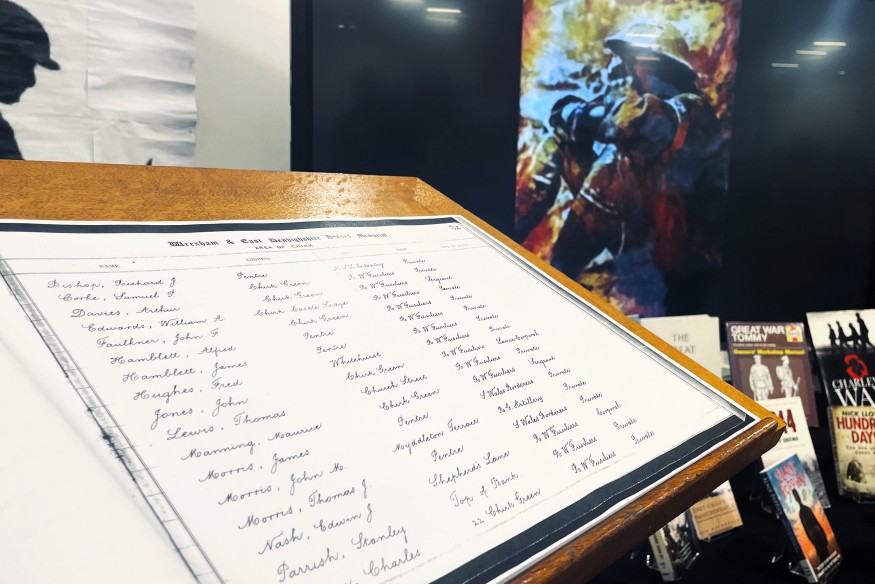 Wrexham & East Denbighshire Heroes Memorial
AREA OF CHIRK
NAME
Bishop, Richard J Pentre Infantry Private
Cooke, Samuel P. Chirk Green R W Fusiliers Private
Davies, Arthur Chirk Green R W Fusiliers Sergeant
Edwards, William A Chirk Castle Lodge R W Fusiliers Private
Faulkner, John F Chirk Green R W Fusiliers Private
Hamblett, Alfred Pentre R W Fusiliers Private
Hamblett, James Pentre R W Fusiliers Private
Hughes, Fred Whitehurst R W Fusiliers Private
Jones, John Chirk Green R W Fusiliers Lance Corporal
Lewis, Thomas Church Street R W Fusiliers Private
Manning, Maurice Chirk Green R W Fusiliers Sergeant
Morris, James Pentre S Wales Borderers Private
Morris, John M. Myddelton Terrace R.G. Artillery
Morris, Thomas J Pentre S Wales Borderers Private
Nash, Edwin J Shepherd's Lane R W Fusiliers Corporal
Parrish, Stanley Top of Frank R W Fusiliers Private
Charles 22 Chirk Green R W Fusiliers Private
THE
GREAT WAR
TOMMY
Haynes
Owners' Workshop Manual
CHARLEY'S
WAR
NICK
HUNDRED
DAYS